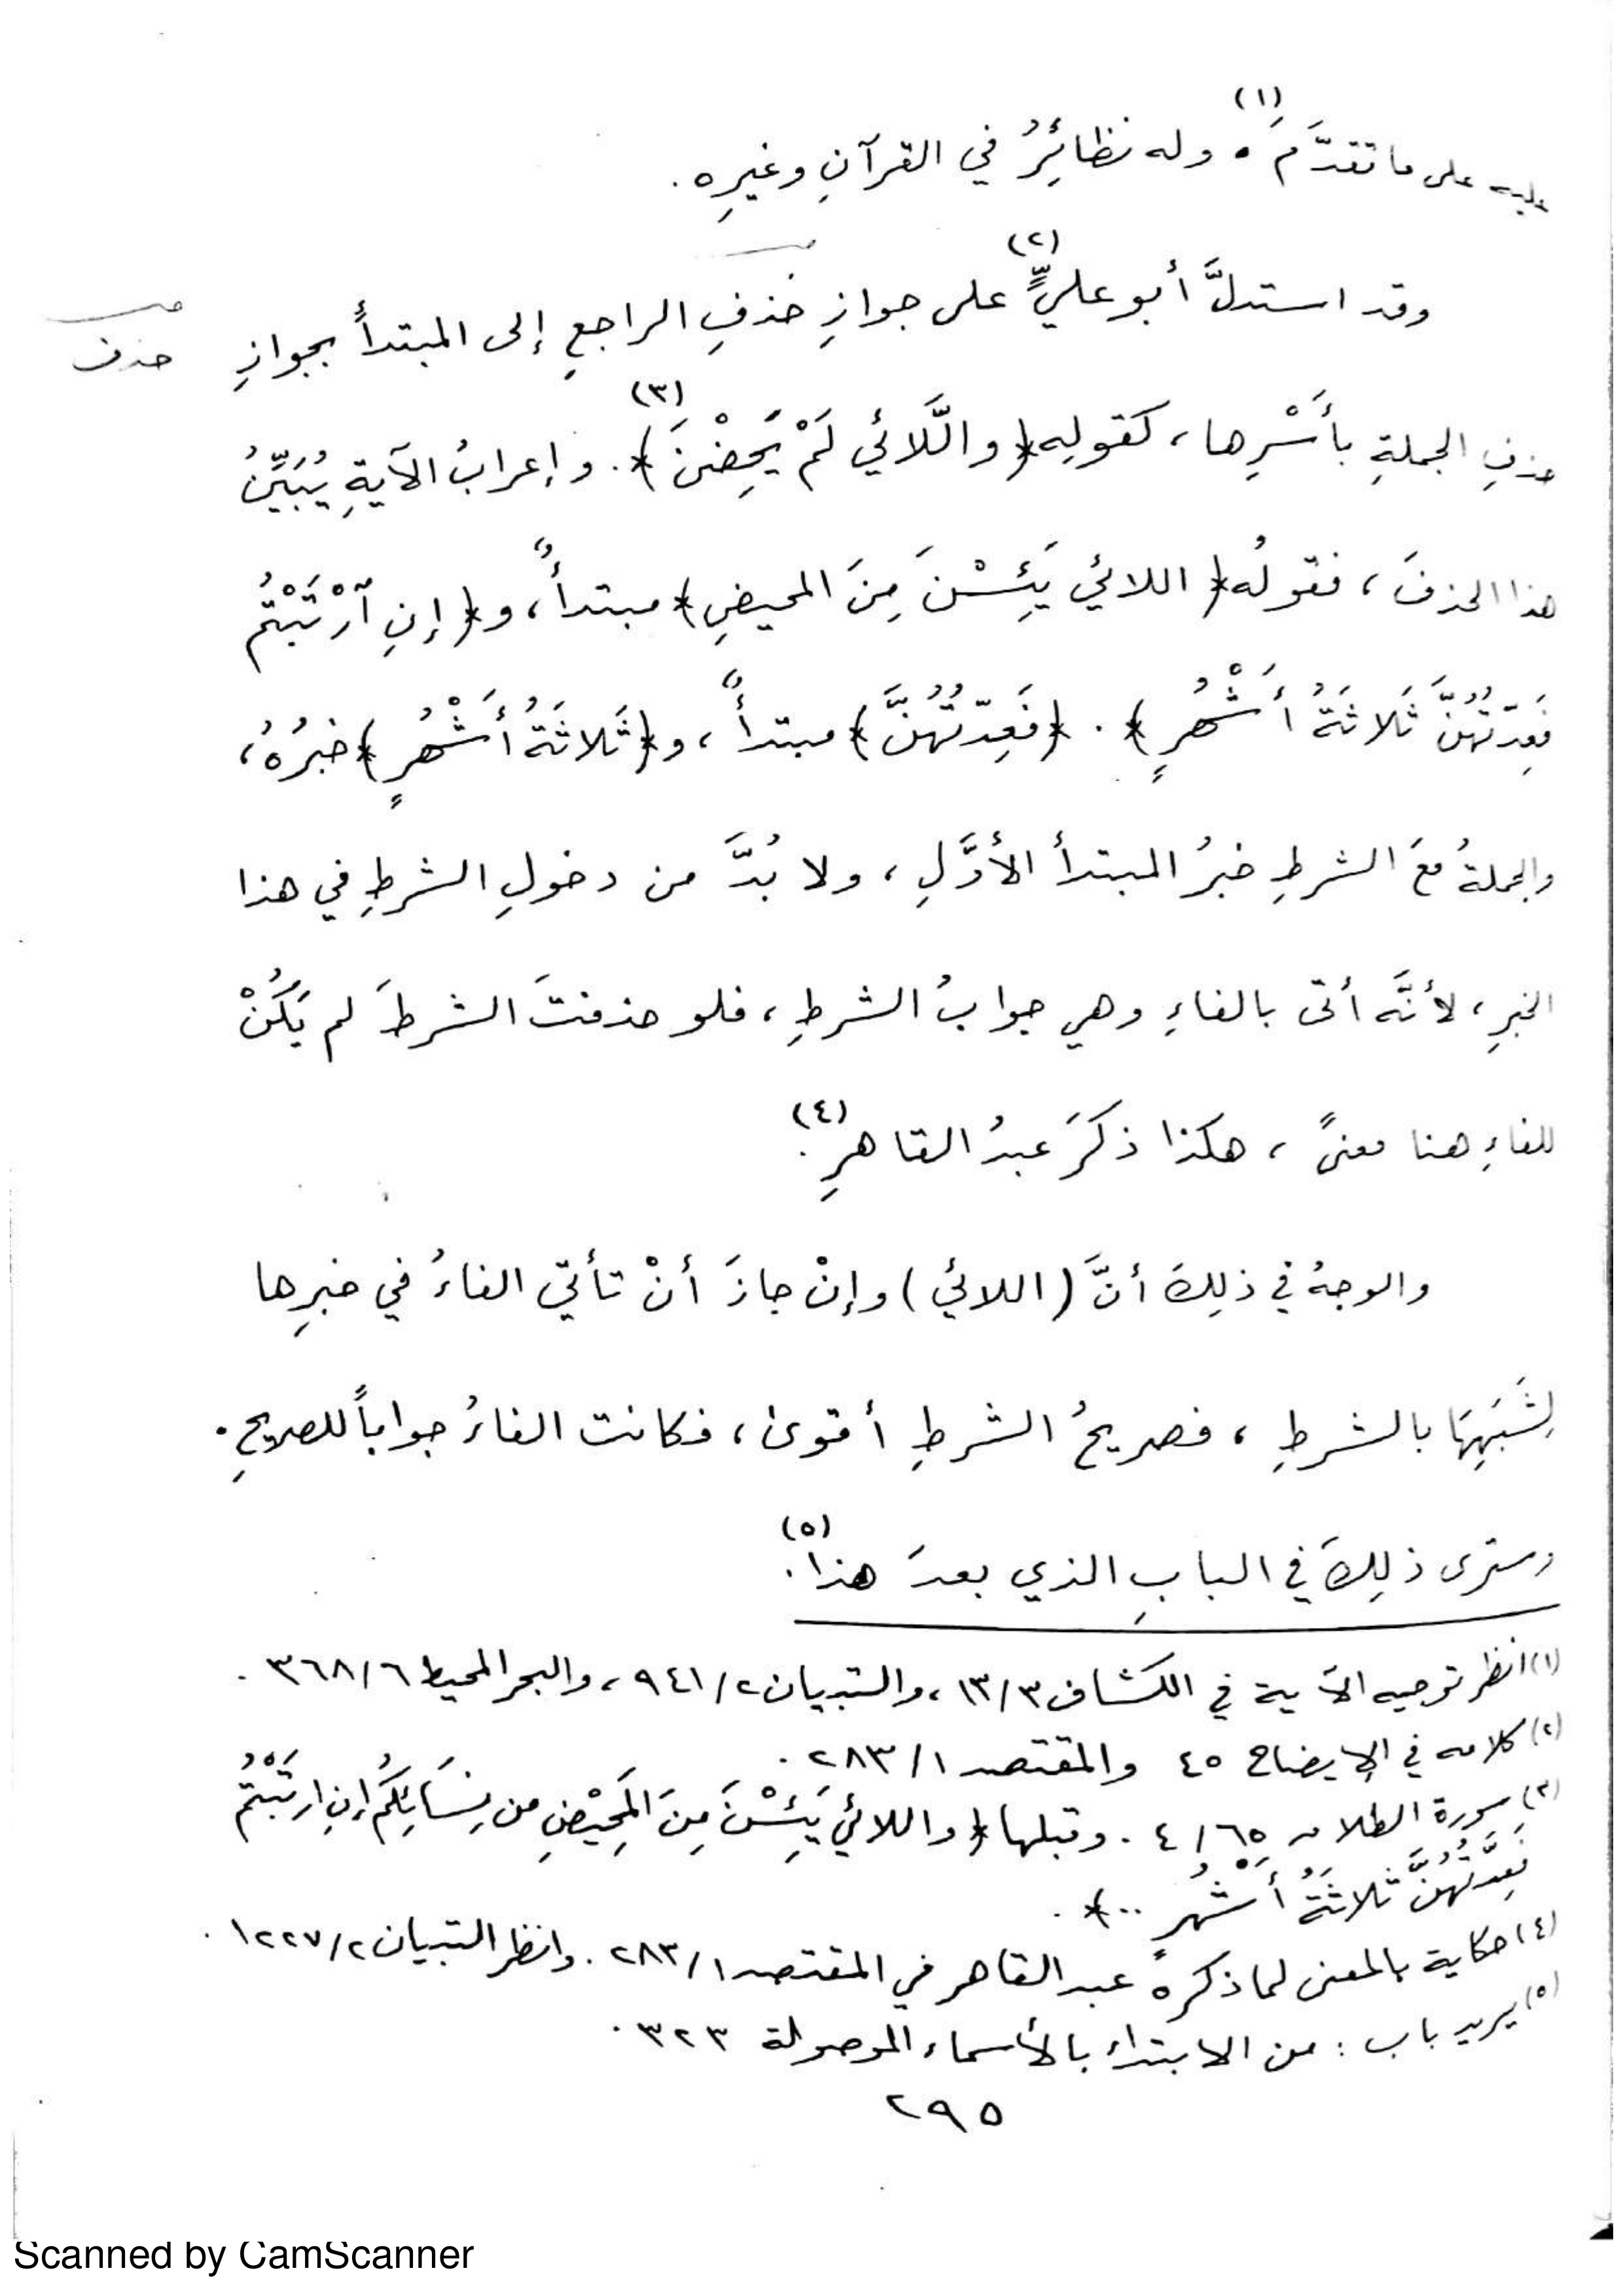 عليه على ما تقدَّمَ(١)، وله نظائِرُ في القرآنِ وغيرِه.
وقد استدلَّ أبو عليٍّ(٢) على جوازِ حَذفِ الراجعِ إلى المبتدأ بجوازِ
حذف
حذفِ الجملةِ بأَسْرِها، كقولِه ﴿واللَّائي لَمْ يَحِضْنَ﴾(٣). وإعرابُ الآيةِ يُبَيِّنُ
هذا الحذفَ، فقولُه ﴿اللائي يَئِسْنَ مِنَ المحيضِ﴾ مبتدأٌ، و﴿إنِ ٱرْتَبْتُمْ
فَعِدّتُهُنَّ ثَلاثَةُ أَشْهُرٍ﴾. ﴿فَعِدّتُهُنَّ﴾ مبتدأٌ، و﴿ثَلاثَةُ أَشْهُرٍ﴾ خبرُهُ،
والجملةُ معَ الشرطِ خبرُ المبتدأ الأوَّلِ، ولا بُدَّ من دخولِ الشرطِ في هذا
الخبرِ، لأنَّه أتى بالفاءِ وهي جوابُ الشرطِ، فلو حذفتَ الشرطَ لم يَكُنْ
للفاءِ هنا معنىً، هكذا ذكَرَ عبدُ القاهرِ(٤).
والوجهُ في ذلِكَ أنَّ (اللائي) وإنْ جازَ أنْ تأتيَ الفاءُ في خبرِها
لِشَبَهِهَا بالشرطِ، فصريحُ الشرطِ أقوى، فكانت الفاءُ جواباً للصريحِ.
وسترى ذلِكَ في البابِ الذي بعدَ هذا(٥).
(١) انظر توجيه الآية في الكشاف ١٣/٣، والتبيان ٩٤١/٢، والبحر المحيط ٣٦٨/٦.
(٢) كلامه في الإيضاح ٤٥ والمقتصد ٢٨٣/١.
(٣) سورة الطلاق ٤/٦٥. وقبلها ﴿واللائي يَئِسْنَ مِنَ المَحِيْضِ من نِسَائِكُم إنِ ارتَبْتُمْ
فَعِدَّتُهُنَّ ثلاثَةُ أَشْهُرٍ ..﴾.
(٤) حكاية بالمعنى لما ذكره عبد القاهر في المقتصد ٢٨٣/١. وانظر التبيان ١٢٢٧/٢.
(٥) يريد باب: من الابتداء بالأسماء الموصولة ٣٢٣.
٢٩٥
Scanned by CamScanner